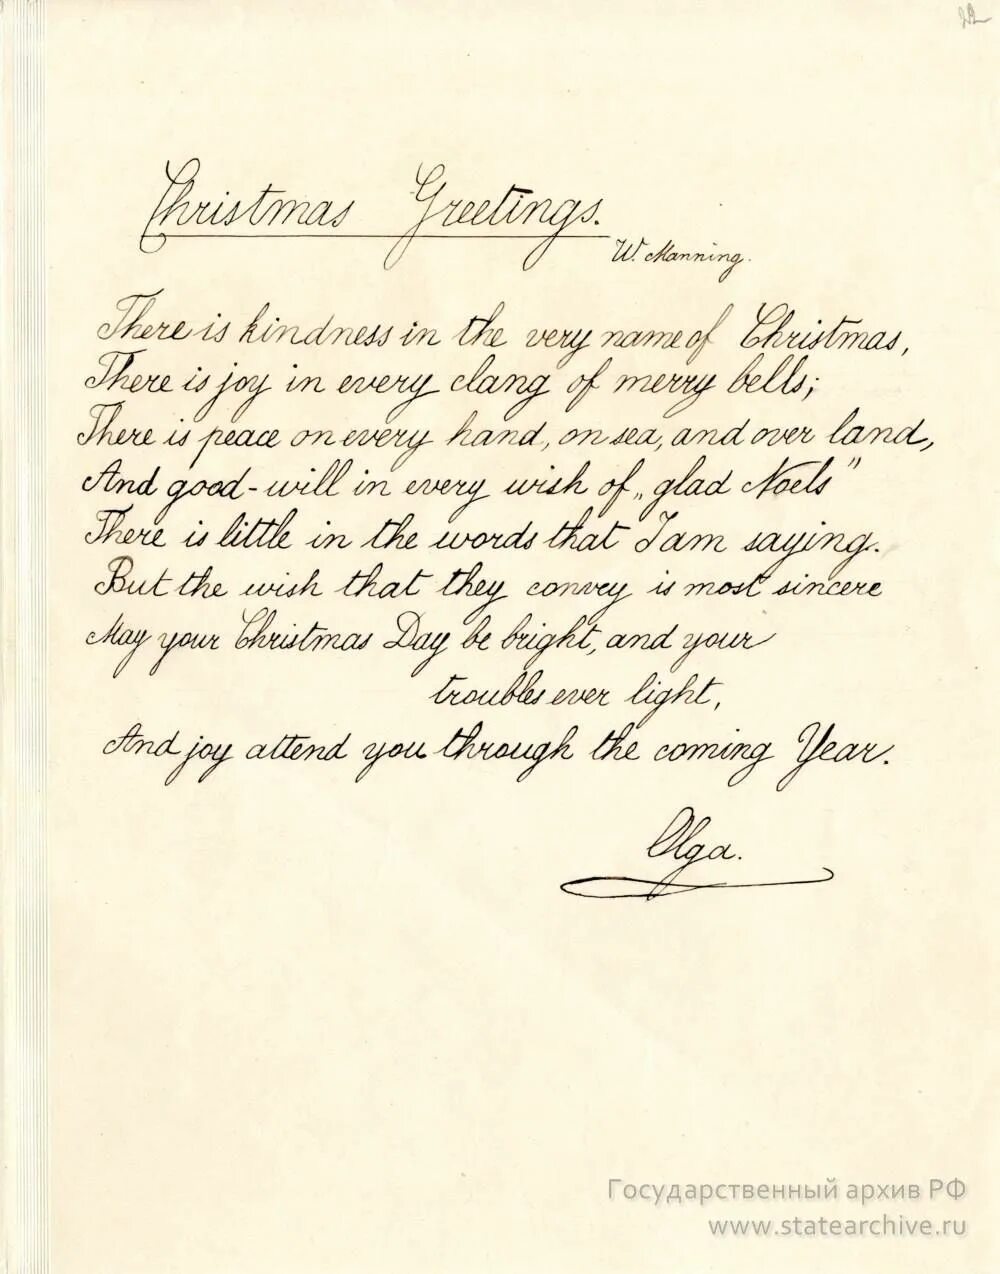 22
Christmas Greetings.
W. Manning.
There is kindness in the very name of Christmas,
There is joy in every clang of merry bells;
There is peace on every hand, on sea, and over land,
And good-will in every wish of „glad Noels"
There is little in the words that I am saying.
But the wish that they convey is most sincere
May your Christmas Day be bright, and your
troubles ever light,
And joy attend you through the coming Year.
Olga.
Государственный архив РФ
www.statearchive.ru